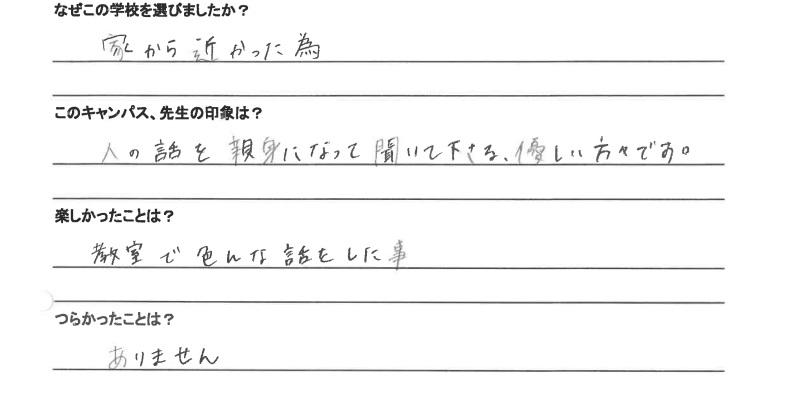 なぜこの学校を選びましたか？
家から近かった為
このキャンパス、先生の印象は？
人の話を親身になって聞いて下さる、優しい方々です。
楽しかったことは？
教室で色んな話をした事
つらかったことは？
ありません